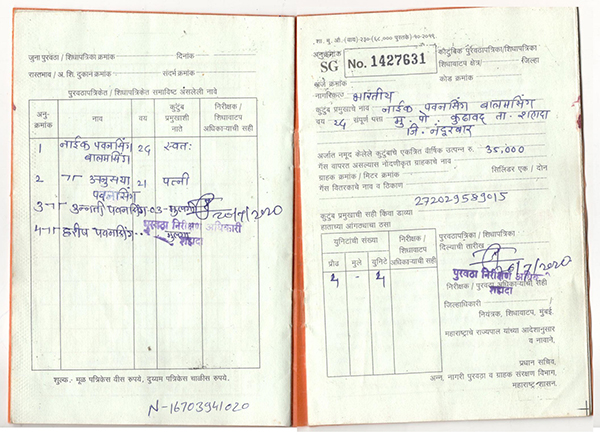 जुना पुरवठा / शिधापत्रिका क्रमांक दिनांक
रास्तभाव / अ. शि. दुकान क्रमांक संदर्भ क्रमांक
पुरवठापत्रिकेत / शिधापत्रिकेत समाविष्ट असलेली नावे
अनु-क्रमांक नाव वय कुटुंब प्रमुखाशी नाते निरीक्षक / शिधावाटप अधिकाऱ्याची सही
1 नाईक पवनसिंग बालमसिंग 24 स्वतः
2 -॥- अनुसया पवनसिंग 21 पत्नी
3 -॥- उन्नती पवनसिंग -03- मुलगी
4 -॥- पवनसिंग
पुरवठा निरीक्षण अधिकारी
शहादा
शुल्क.- मूळ पत्रिकेस वीस रुपये, दुय्यम पत्रिकेस चाळीस रुपये.
N-16703941020
अनुक्रमांक
SG No. 1427631
कौटुंबिक पुरवठापत्रिका/शिधापत्रिका
शिधावाटप क्षेत्र/ जिल्हा
अर्ज क्रमांक कोड क्रमांक
नागरिकत्व भारतीय
कुटुंब प्रमुखाचे नाव नाईक पवनसिंग बालमसिंग
वय 24 संपूर्ण पत्ता मु. पो. कुढावद ता. शहादा
जि. नंदुरबार
अर्जात नमूद केलेले कुटुंबाचे एकत्रित वार्षिक उत्पन्न रु. 35,000
गॅस वापरत असल्यास नोंदणीकृत ग्राहकाचे नाव
ग्राहक क्रमांक / मिटर क्रमांक सिलिंडर एक / दोन
गॅस वितरकाचे नाव व ठिकाण
272029589015
कुटुंब प्रमुखाची सही किंवा डाव्या
हाताच्या आंगठ्याचा ठसा
युनिटांची संख्या निरीक्षक / शिधावाटप अधिकाऱ्याची सही
प्रौढ मुले युनिटे
4 - 4
पुरवठापत्रिका / शिधापत्रिका
दिल्याची तारीख
पुरवठा निरीक्षण
शहादा
निरीक्षक / पुरवठा अधिकाऱ्याची सही
जिल्हाधिकारी
नियंत्रक, शिधावाटप, मुंबई.
महाराष्ट्राचे राज्यपाल यांच्या आदेशानुसार
व नावाने,
प्रधान सचिव,
अन्न, नागरी पुरवठा व ग्राहक संरक्षण विभाग,
महाराष्ट्र शासन.